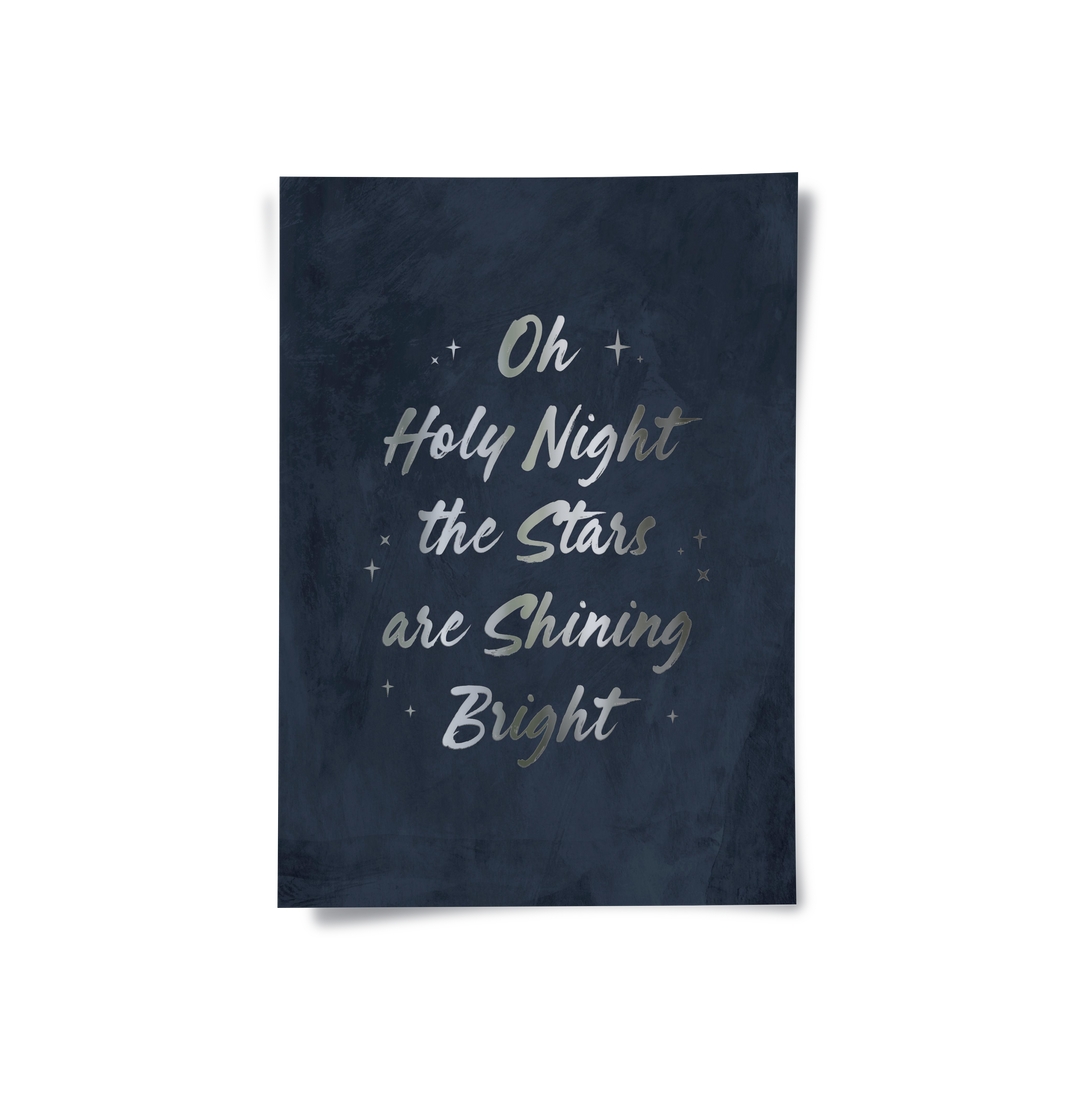 Oh
Holy Night
the Stars
are Shining
Bright